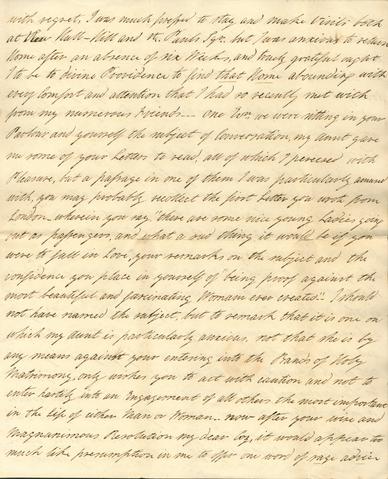 with regret, I was much pressed to stay and make Visits both
at Hall-Hill and St. Pauls Sqr. but I was anxious to return
Home after an absence of six Weeks, and truly grateful ought
I to be to divine Providence to find that Home abounding with
every Comfort and attention that I had so recently met with
from my numerous Friends — One Eve, we were sitting in your
Parlour and yourself the subject of Conversation, my Aunt gave
me some of your Letters to read, all of which I perused with
Pleasure, but a passage in one of them I was particularly amused
with, you may probably recollect the first letter you wrote from
London wherein you say "there are some nice young Ladies going
out as passengers, and what a sad thing it would be if you
were to fall in Love, your remarks on the subject and the
confidence you place in yourself of being proof against the
most beautiful and fascinating Woman ever created". I should
not have named the subject, but to remark that it is one on
which my Aunt is particularly anxious, not that she is by
any means against your entering into the Bands of Holy
Matrimony, only wishes you to act with caution and not to
enter hastily into an Engagement of all others the most important
in the life of either Man or Woman - now after your wise and
Magnanimous Resolution my dear Coz, it would appear too
much like presumption in me to offer one word of sage advice